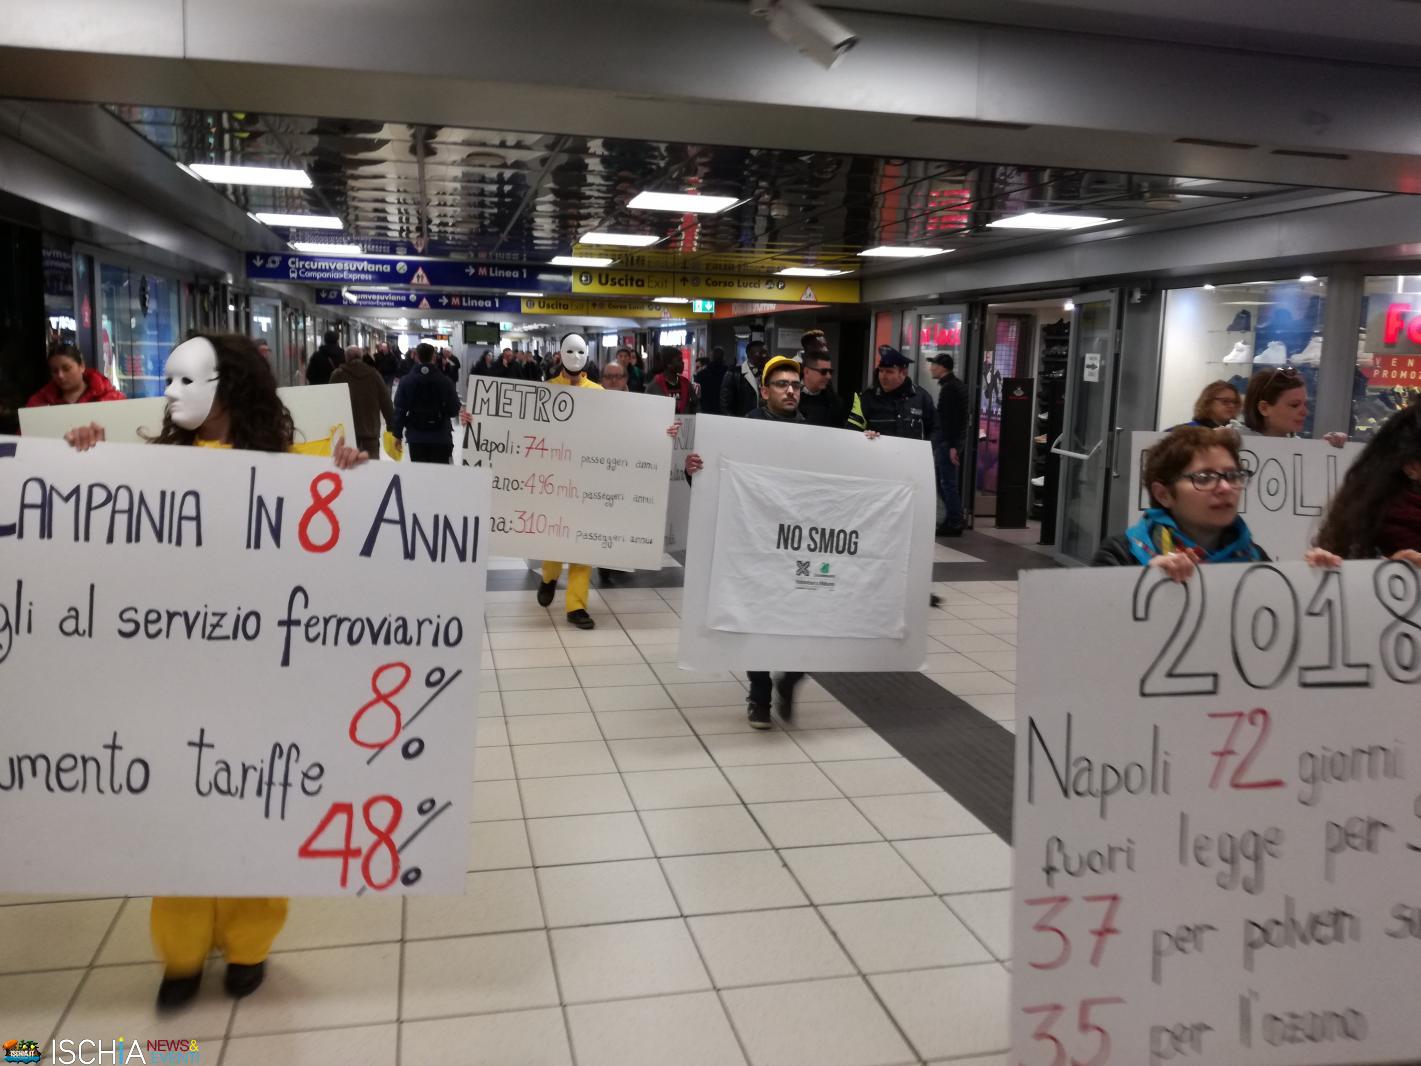 Circumvesuviana
Campania>Express
M Linea 1
Uscita Exit
Corso Lucci
M Linea 1
Uscita
CAMPANIA IN 8 ANNI
al servizio ferroviario
8%
tariffe
48%
METRO
Napoli: 74 mln passeggeri annui
496 mln passeggeri annui
310 mln passeggeri annui
NO SMOG
2018
Napoli 72 giorni
fuori legge per
37 per polveri
35 per l'ozono
ISCHIA NEWS&
EVENTI